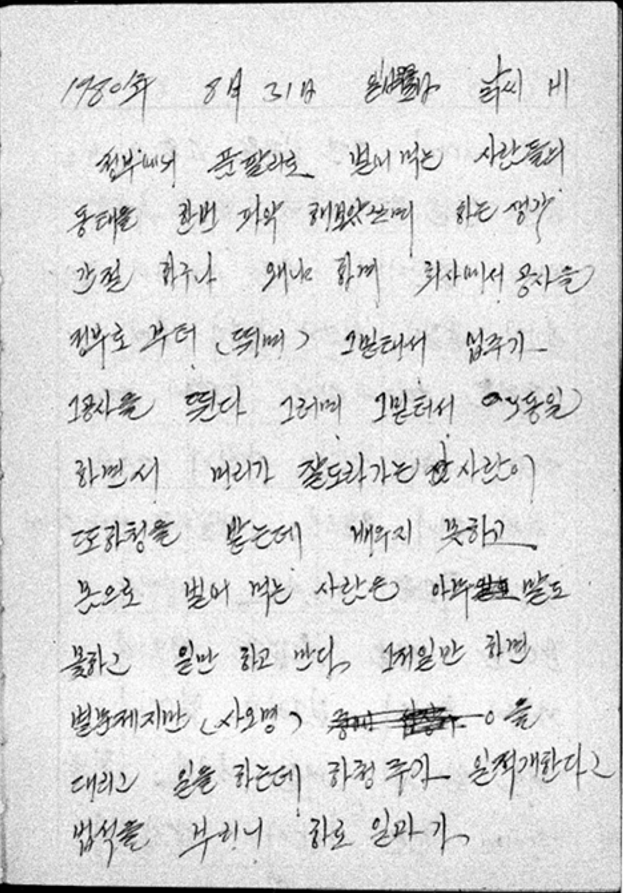 1980年 8月 31日 일요일 날씨 비
정부에서 푼팔리로 벌어먹는 사람들의
동태을 한번 파악 해보았쓰며 하는 생각
간절 하구나 왜냐 함며 회사에서 공사을
정부로 부터 (뛰며) 그밑태서 업주가
그공사을 띤다 그러며 그밑터서 노동일
하면서 머리가 잘도라가는 사람이
또하청을 받는데 배우지 못하고
몸으로 벌어 먹는 사람은 아무 말도
못하고 일만 하고 만다. 그저일만 하면
벌문제지만 (사오명) 을
대리고 일을 하는데 하청 주가 일적개한다고
법석을 부리니 하로 일과가